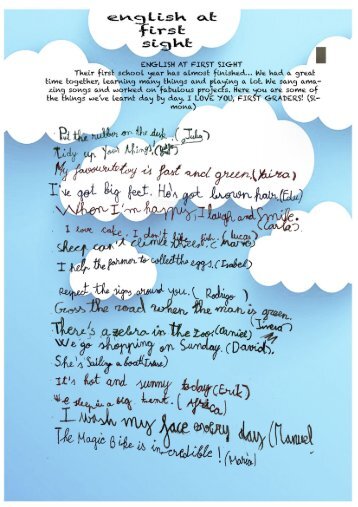 english at
first
sight
ENGLISH AT FIRST SIGHT
Their first school year has almost finished... We had a great
time together, learning many things and playing a lot. We sang ama-
zing songs and worked on fabulous projects. Here you are some of
the things we've learnt day by day. I LOVE YOU, FIRST GRADERS! (Si-
mona)
Put the rubber on the desk...(Julia)
Tidy up your things!
My favourite toy is fast and green.(Yaira)
I've got big feet. He's got brown hair.(Edu)
When I'm happy, I laugh and smile.
(Carla).
I love cake. I don't like fish. (Lucas)
Sheep can't climb trees.
I help the farmer to collect the eggs.(Isabel)
Respect the signs around you. (Rodrigo)
Cross the road when the man is green.
There's a zebra in the zoo.(Daniel)
We go shopping on Sunday. (David).
She's sailing a boat
It's hot and sunny today (Erik)
We sleep in a big tent. (Africa)
I wash my face every day (Manuel
The Magic Bike is in credible! (Mario)